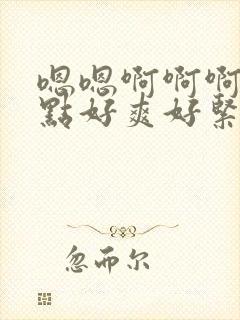 嗯嗯啊啊啊
點好爽好緊
忽而尔